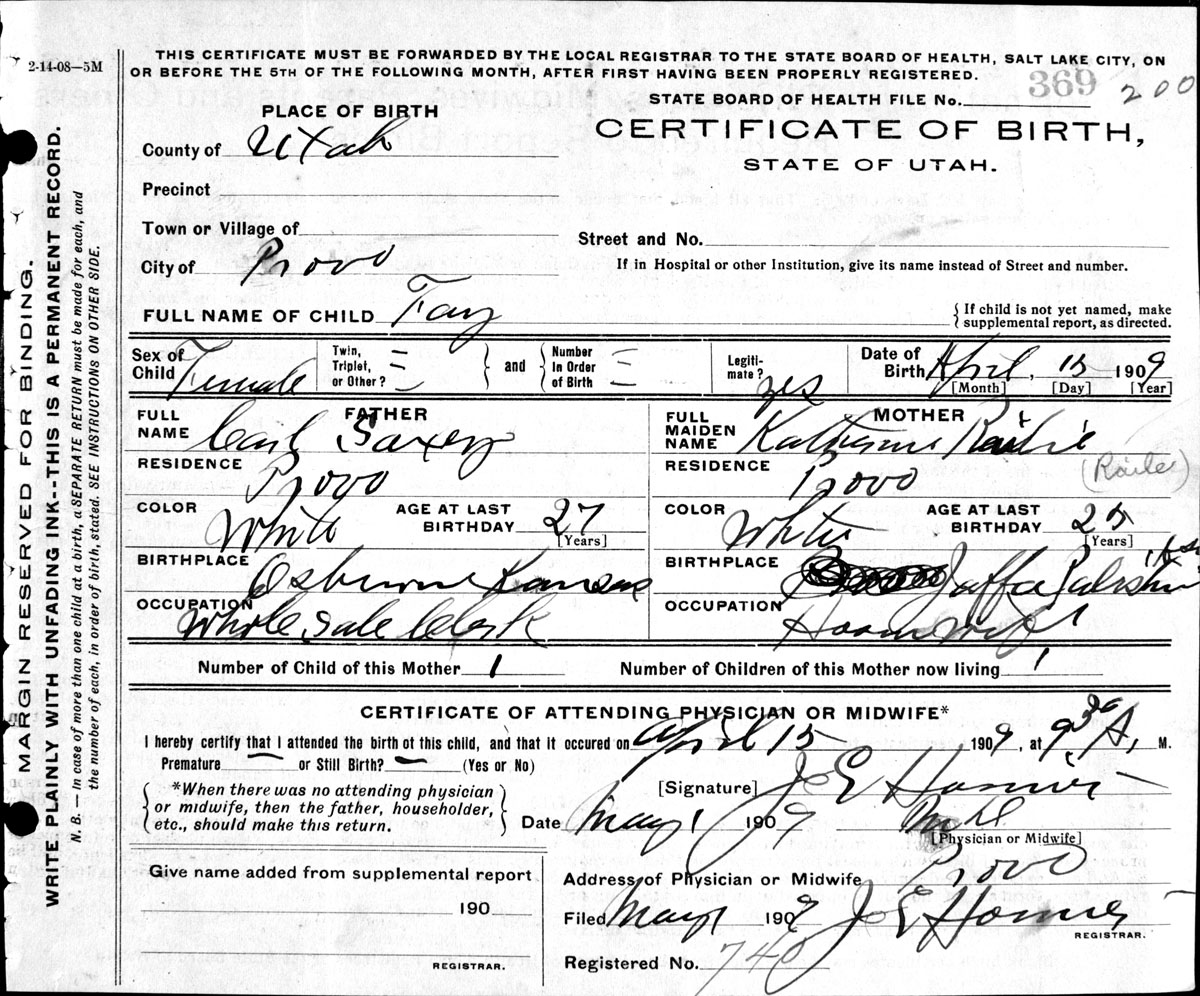 2-14-08—5M
THIS CERTIFICATE MUST BE FORWARDED BY THE LOCAL REGISTRAR TO THE STATE BOARD OF HEALTH, SALT LAKE CITY, ON
OR BEFORE THE 5TH OF THE FOLLOWING MONTH, AFTER FIRST HAVING BEEN PROPERLY REGISTERED.
STATE BOARD OF HEALTH FILE No. 369 200
PLACE OF BIRTH
CERTIFICATE OF BIRTH,
STATE OF UTAH.
County of Utah
Precinct
Town or Village of
Street and No.
City of Provo
If in Hospital or other Institution, give its name instead of Street and number.
FULL NAME OF CHILD Fay
{If child is not yet named, make
supplemental report, as directed.
Sex of Child Female
Twin, Triplet, or Other?
and
Number In Order of Birth
Legiti-mate? yes
Date of Birth April, 15 1909
[Month] [Day] [Year]
FATHER
FULL NAME Carl Saxey
RESIDENCE Provo
COLOR White
AGE AT LAST BIRTHDAY 27
[Years]
BIRTHPLACE Osburne Kansas
OCCUPATION Whole Sale Clerk
MOTHER
FULL MAIDEN NAME Katherine
RESIDENCE Provo
COLOR White
AGE AT LAST BIRTHDAY 25
[Years]
BIRTHPLACE Jaffa
OCCUPATION
Number of Child of this Mother 1
Number of Children of this Mother now living 1
CERTIFICATE OF ATTENDING PHYSICIAN OR MIDWIFE*
I hereby certify that I attended the birth of this child, and that it occured on April 15 1909, at 9:30 A, M.
Premature — or Still Birth? — (Yes or No)
{*When there was no attending physician
or midwife, then the father, householder,
etc., should make this return.}
[Signature] J E
Date May 1 1909
[Physician or Midwife]
Give name added from supplemental report
190
REGISTRAR.
Address of Physician or Midwife Provo
Filed May 1 1909 J E
REGISTRAR.
Registered No. 740
MARGIN RESERVED FOR BINDING.
WRITE PLAINLY WITH UNFADING INK--THIS IS A PERMANENT RECORD.
N. B. — In case of more than one child at a birth, a SEPARATE RETURN must be made for each, and
the number of each, in order of birth, stated. SEE INSTRUCTIONS ON OTHER SIDE.